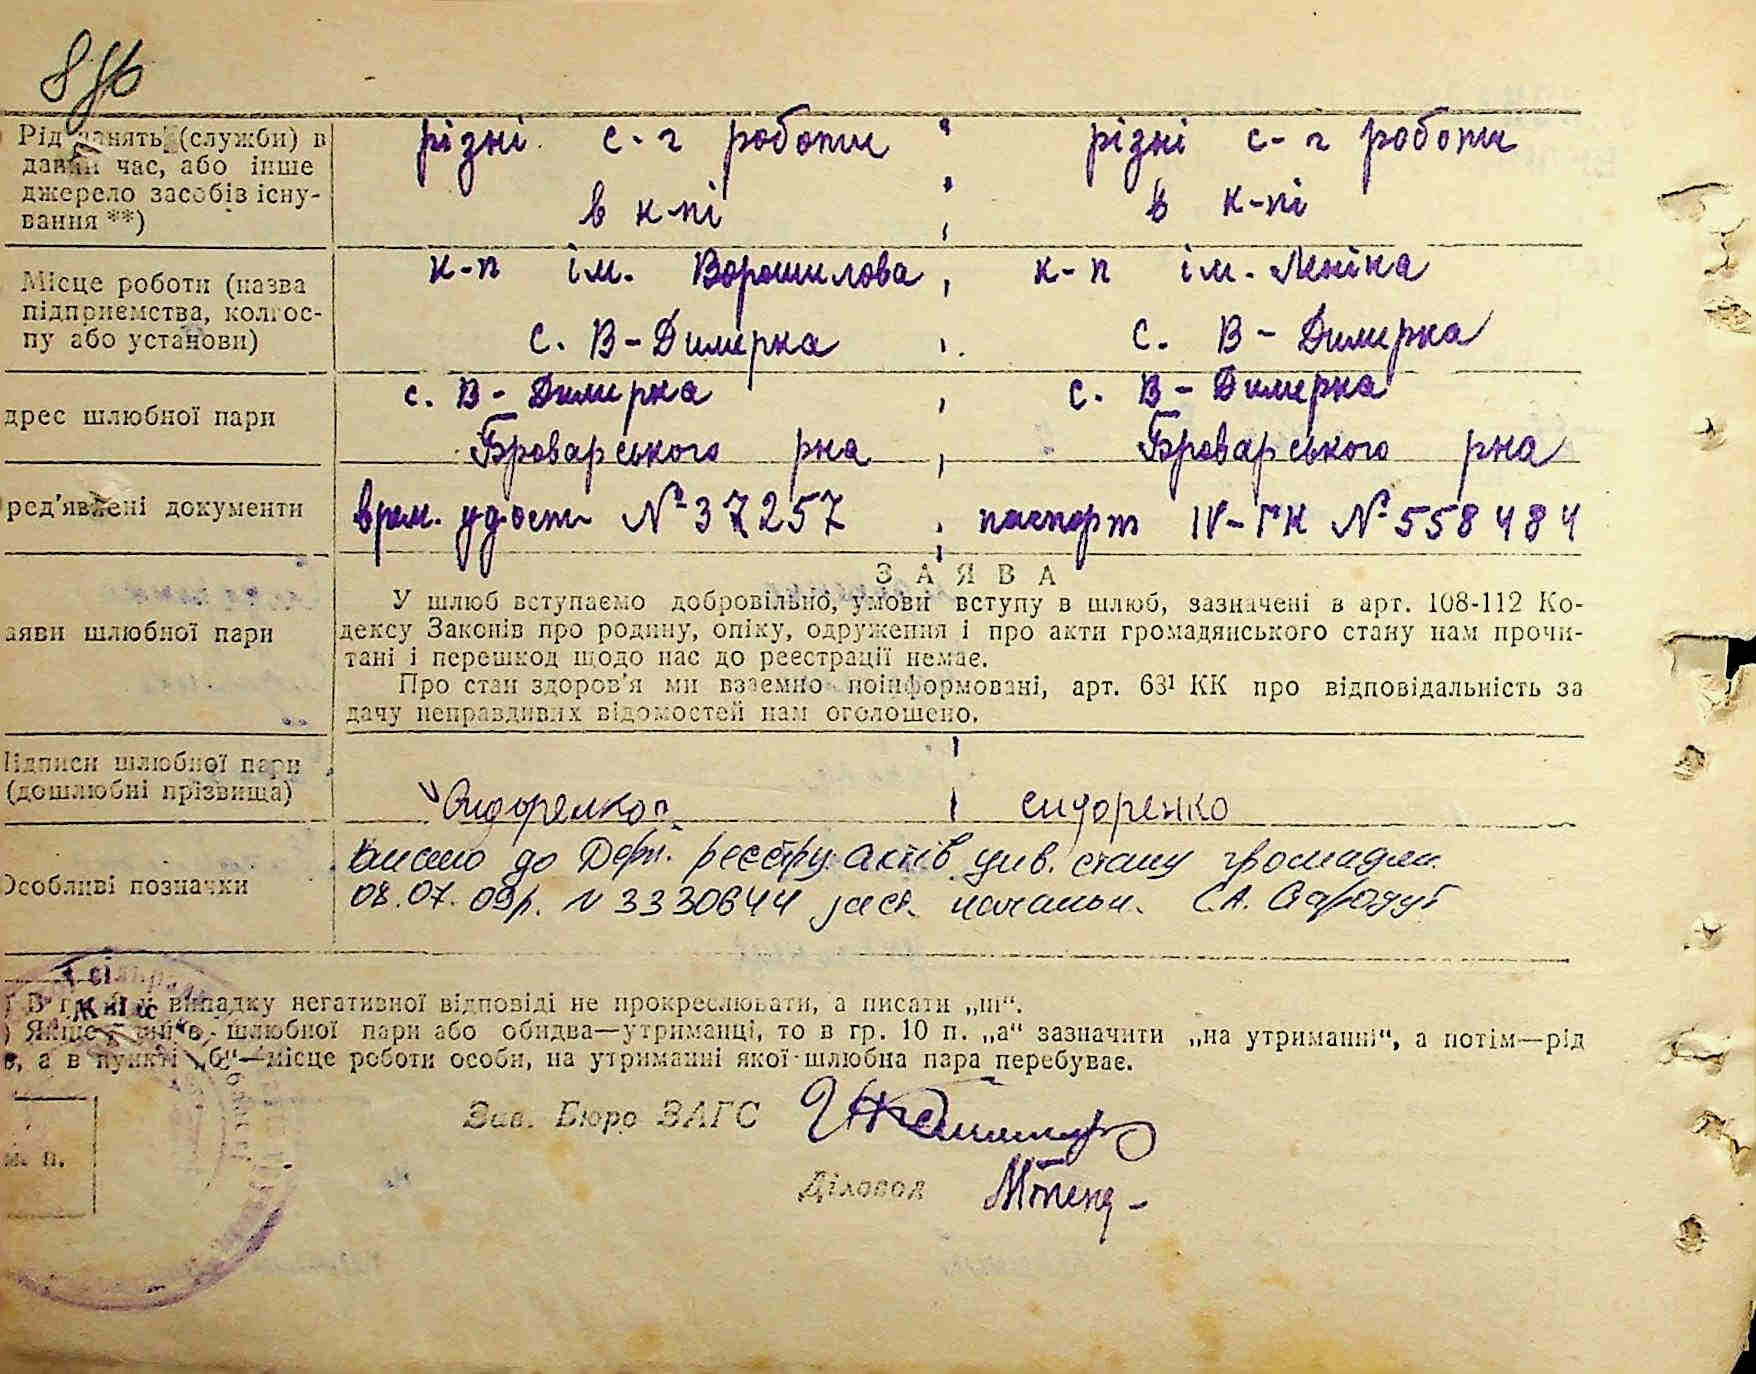 Рід занять (служби) в
даний час, або інше
джерело засобів існу-
вання **)
різні с-г роботи
в к-пі
різні с-г роботи
в к-пі
Місце роботи (назва
підприємства, колгос-
пу або установи)
к-п ім. Ворошилова
с. В-Димерка
к-п ім. Леніна
с. В-Димерка
дрес шлюбної пари
с. В-Димерка
Броварського рна
с. В-Димерка
Броварського рна
ред'явлені документи
врем. удост № 37257
паспорт IV-ГК № 558484
аяви шлюбної пари
ЗАЯВА
У шлюб вступаємо добровільно, умови вступу в шлюб, зазначені в арт. 108-112 Ко-
дексу Законів про родину, опіку, одруження і про акти громадянського стану нам прочи-
тані і перешкод щодо нас до реєстрації немає.
Про стан здоров'я ми взаємно поінформовані, арт. 63¹ КК про відповідальність за
дачу неправдивих відомостей нам оголошено.
Підписи шлюбної пари
(дошлюбні прізвища)
сидоренко
Особливі позначки
внесено до Держ. реєстру актів цив. стану громадян
08.07.09р. N 3330644 заст. начальн. С.А. Стародуб
В випадку негативної відповіді не прокреслювати, а писати „ні“.
) Якщо шлюбної пари або обидва—утриманці, то в гр. 10 п. „а“ зазначити „на утриманні“, а потім—рід
в, а в пункті „б“—місце роботи особи, на утриманні якої шлюбна пара перебуває.
Зав. Бюро ЗАГС
м. п.
Діловод